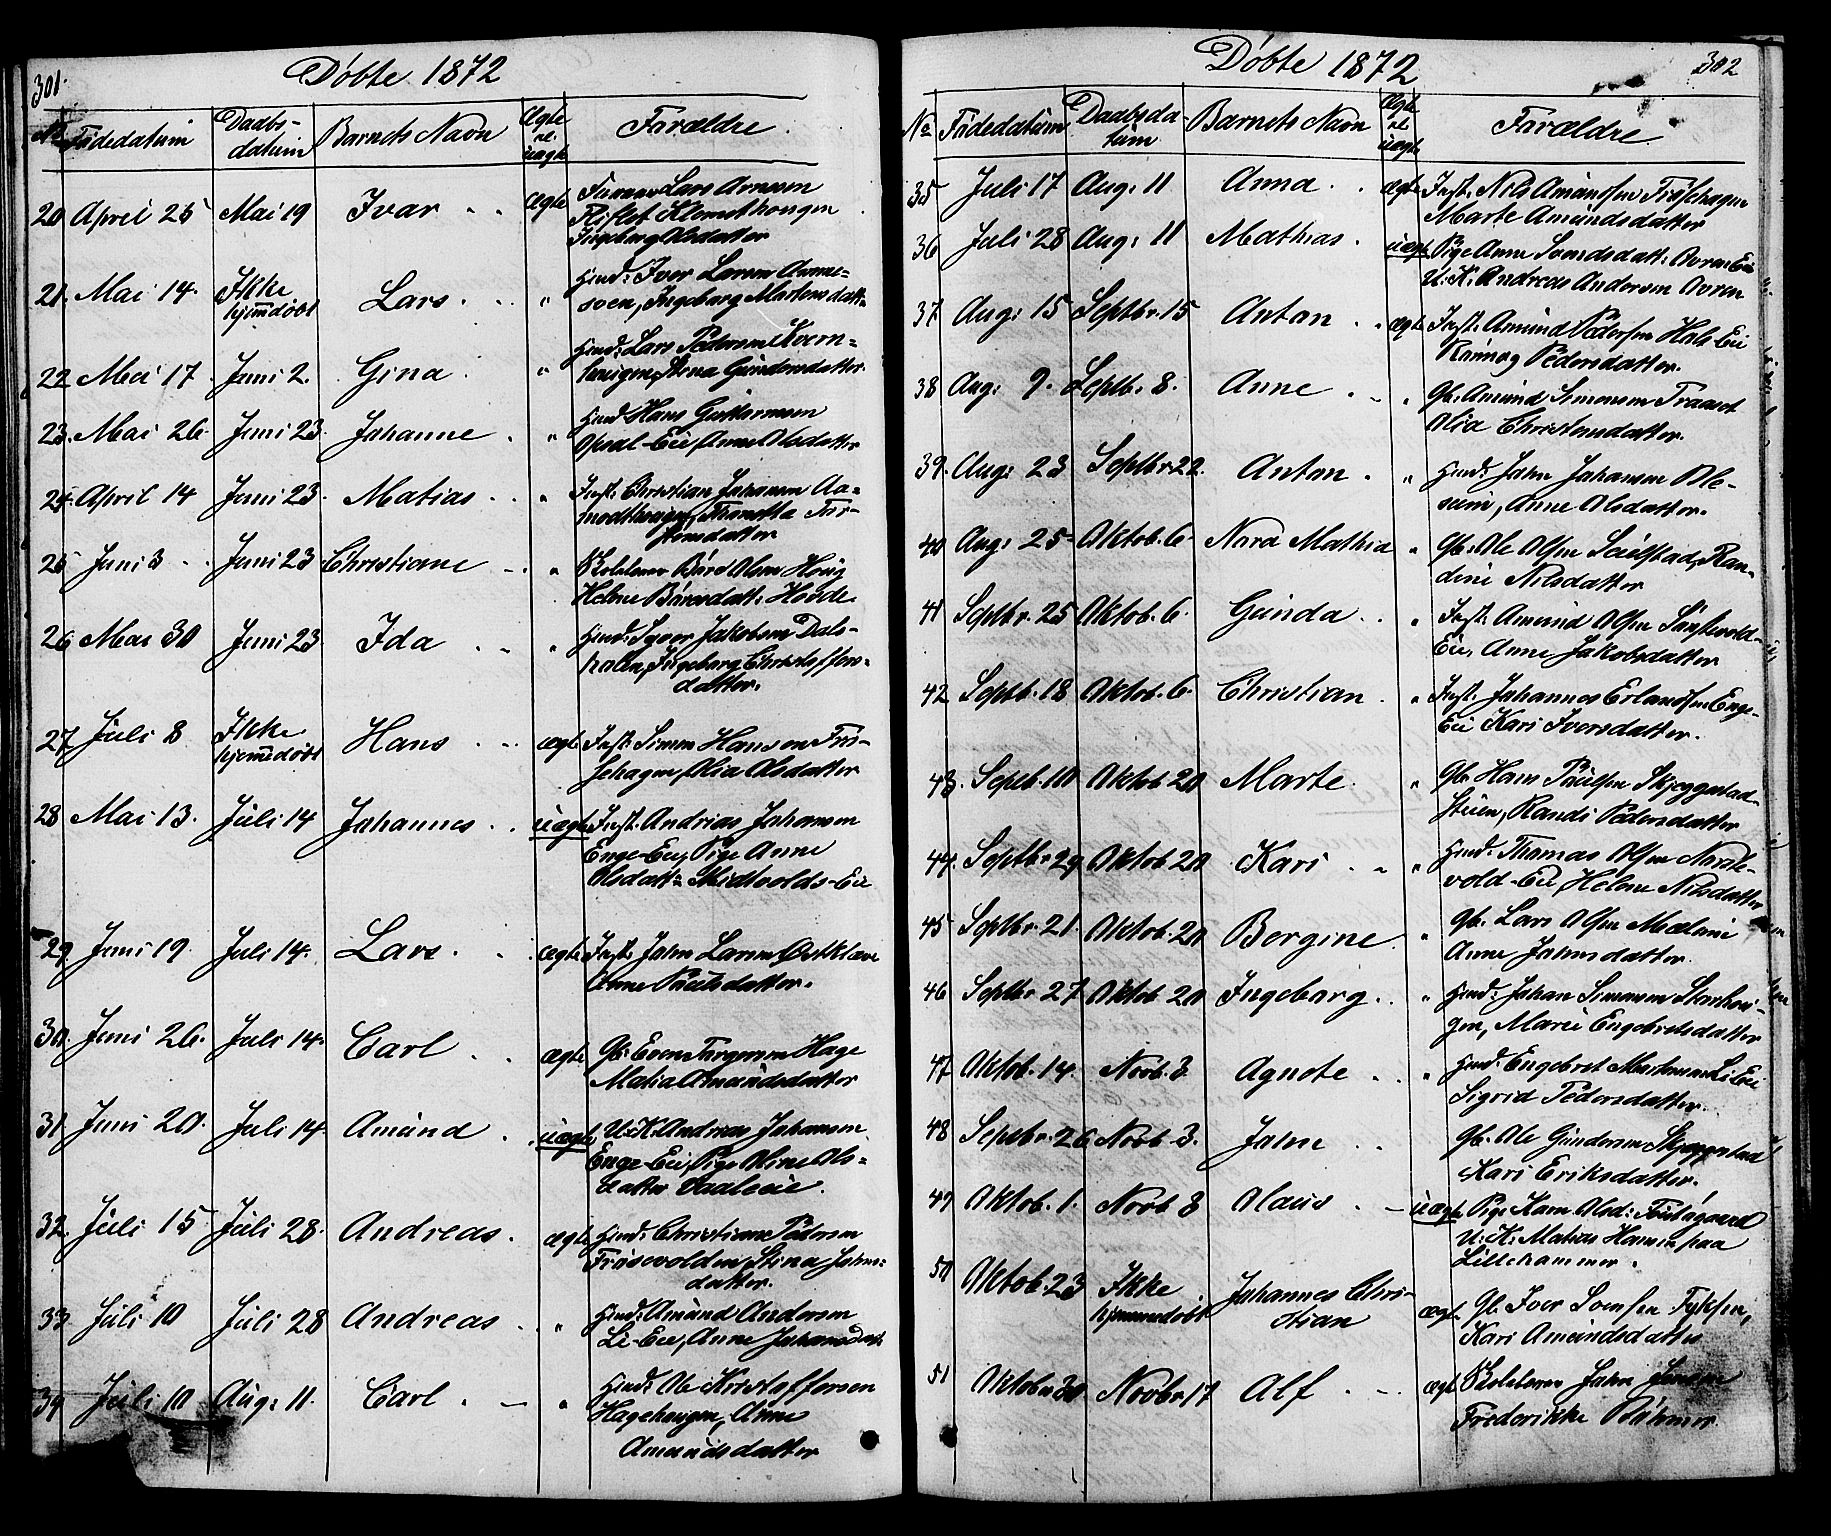 301.
Döbte 1872
No Födedatum Daabs-datum Barnets Navn Ægte el. uægte Forældre.
20 April 25 Mai 19 Ivar ægte Lars Arnesen
Klomsthougen
Ingeborg Olsdatter
21. Mai 14. Ikke hjemdöbt Lars " Huusd: Iver Larsen
Ingeborg Martensdatt:
22 Mai 17 Juni 2. Gina " Huusd: Lars Pedersen Kvern-
Stina Gundersdatter.
23. Mai 26. Juni 23. Johanne " Huusd Hans Guttormsen
Opsal-Eie, Anne Olsdatter
24. April 14 Juni 23. Matias " Inst: Christian Johansen Aa-
modthougen, Thonetta Tor-
stensdatter
25 Juni 3 Juni 23 Christiane " Skolelærer Bård Olsen
Helene Bårdsdatt: Hovde.
26 Mai 30 Juni 23 Ida " Huusd: Syver Jakobsen Dals-
Ingeborg Christoffers-
datter.
27 Juli 8 Ikke hjemmedöbt Hans ægte Inst: Simen Hansen Frö-
sehagen, Olia Olsdatter
28 Mai 13. Juli 14 Johannes uægte Inst. Andrias Johansen
Enge-Eie, Pige Anne
Olsdatt: Midtvolds-Eie
29 Juni 19. Juli 14. Lars. ægte Inst: John Larsen Östklæve
Anne Paulsdatter.
30. Juni 26. Juli 14. Carl ægte Gb: Even Torgersen Hage
Matia Amundsdatter
31. Juni 20. Juli 14. Amund uægte U: K: Andreas Johansen
Enge-Eie, Pige Oline Ols-
datter
32. Juli 15 Juli 28. Andreas. ægte Huusd: Christian Pedersen
Frösvolden, Stina Johns-
datter.
33. Juli 10 Juli 28 Andreas " Huusd: Amund Andersen
Li-Eie, Anne Johansdatt
34 Juli 10 Aug: 11. Carl " Huusd: Ole Kristoffersen
Hagehougen, Anne
Amundsdatter
302
Döbte 1872
No Födedatum Daabsda-tum Barnets Navn Ægte el. uægte Forældre.
35 Juli 17 Aug: 11 Anna ægte Inst: Nils Amundsen Fröschagen
Marte Amundsdatter
36 Juli 28 Aug: 11 Mathias uægte Pige Anne Svendsdatt: Aaren Eie
U: K: Andreas Andersen Aaren
37 Aug: 15 Septbr. 15 Anton ægte Inst: Amund Pedersen Hals Eie
Rönnog Pedersdatter.
38 Aug: 9. Septb. 8. Anne " Gb: Amund Simensen Traaset
Olia Christensdatter.
39. Aug: 23 Septbr 22. Anton " Huusd: John Johansen Ble-
Anne Olsdatter.
40 Aug: 25 Oktob. 6 Nora Mathia " Gb: Ole Olsen Saulstad, Ran-
dine Nilsdatter
41 Septbr. 25 Oktob. 6. Gunda " Inst. Amund Olsen
Eie, Anne Jakobsdatter
42 Septb. 18 Oktob. 6. Christian " Inst: Johannes Erlandsen Enge-
Eie Kari Iversdatter.
43. Septb. 10 Oktob 20 Marte " Gb: Hans Paulsen Skjeggestad-
Randi Pedersdatter
44. Septbr 29 Oktob 20 Kari " Huusd: Thomas Olsen Norde-
vold-Eie Helene Nilsdatter
45 Septbr. 21. Oktob. 20 Bergine " Gb: Lars Olsen Mælum
Anne Johnsdatter.
46 Septbr 27. Oktob 20 Ingeborg " Huusd: Johan Simensen
gen, Marie Engebretsdatter
47 Oktob. 14. Novb. 3. Agnete " Huusd: Engebret Martinsen Li Eie
Sigrid Pedersdatter.
48 Septbr. 26 Novb. 3. John " Gb: Ole Gundersen Skjeggestad
Kari Eriksdatter.
49 Oktob. 1. Novb 3 Olaus uægte Pige Karn Olsd:
U: K: Matias Hansen paa
Lillehammer.
50 Oktob. 23 Ikke hjemmedöbt Johannes Chri-stian ægte Gb. Iver Svensen
Kari Amundsdatter
51 Oktobr 30 Novbr 17 Alf ægt. Skolelærer John
Frederikke